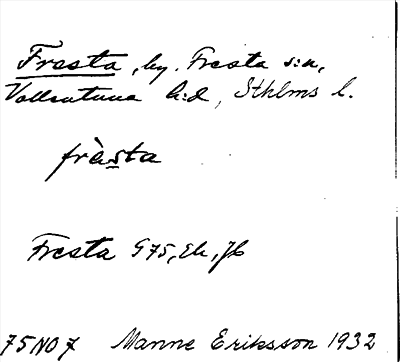 Fresta, by. Fresta s:n,
Vallentuna h:d, Sthlms l.
frèsta
Fresta G75, Ek, Jb
75NO7 Manne Eriksson 1932